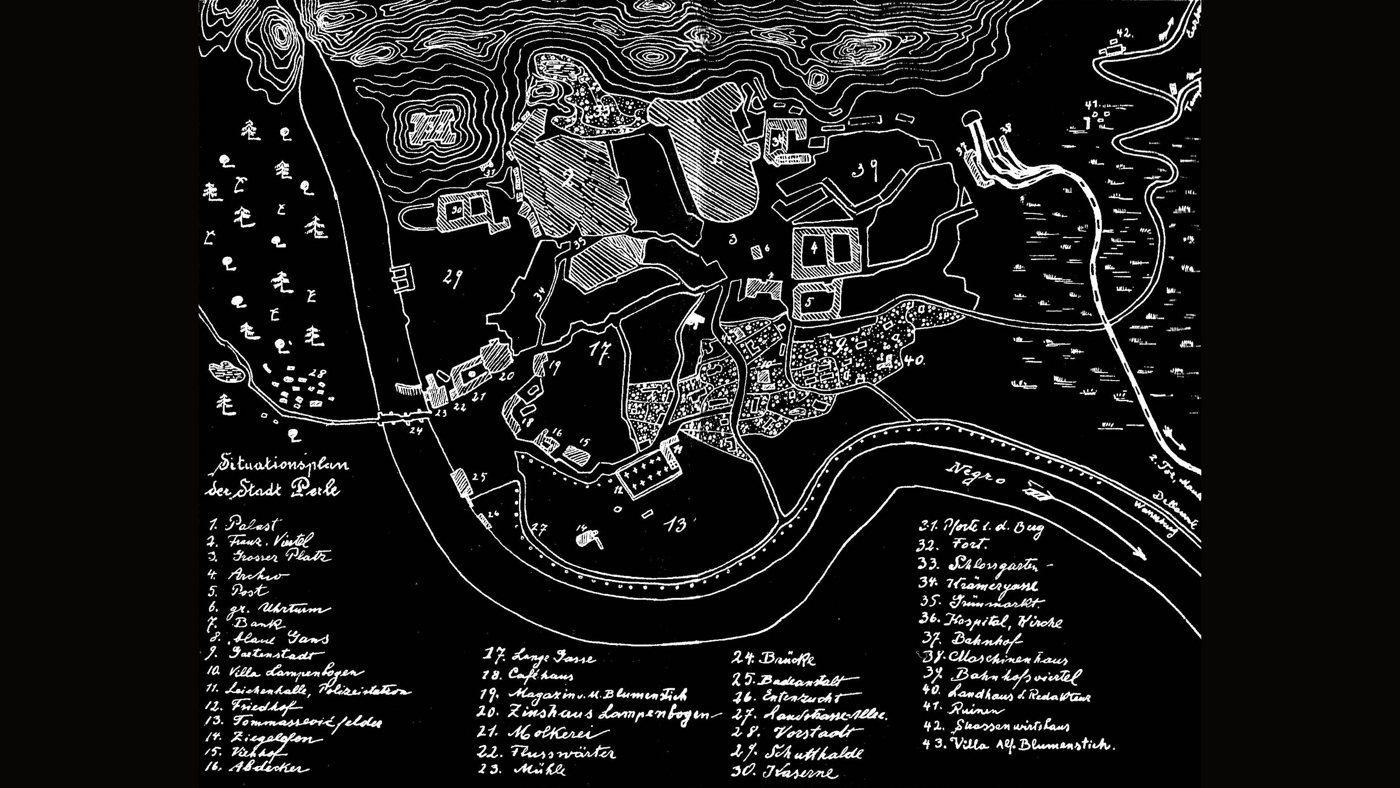 Situationsplan
der Stadt Perle
1. Palast
2. Franz. Viertel
3. Grosser Platz
4. Archiv
5. Post
6. gr. Uhrturm
7. Bank
8. Blaue Gans
9. Gartenstadt
10. Villa Lampenbogen
11. Leichenhalle, Polizeistation
12. Friedhof
13. Tommassevićfelder
14. Ziegelofen
15. Viehhof
16. Abdecker
17. Lange Gasse
18. Caféhaus
19. Magazin v. M. Blumenstich
20. Zinshaus Lampenbogen
21. Molkerei
22. Flusswärter
23. Mühle
24. Brücke
25. Badeanstalt
26. Entenzucht
27. Landstrasse-Allee.
28. Vorstadt
29. Schutthalde
30. Kaserne
31. Pforte i. d. Berg
32. Fort.
33. Schlossgarten
34. Krämergasse
35. Grünmarkt
36. Hospital, Kirche
37. Bahnhof
38. Maschinenhaus
39. Bahnhofsviertel
40. Landhaus d. Redakteur
41. Ruinen
42. Strassenwirtshaus
43. Villa Alf. Blumenstich.
Negro
42.
41.
38
37
36
39
1.
2.
3
6
4
5
35
34
30
29
17
19
20
21
22
23
24
28
40.
18
16
15
12
11
13
14
25
26
27